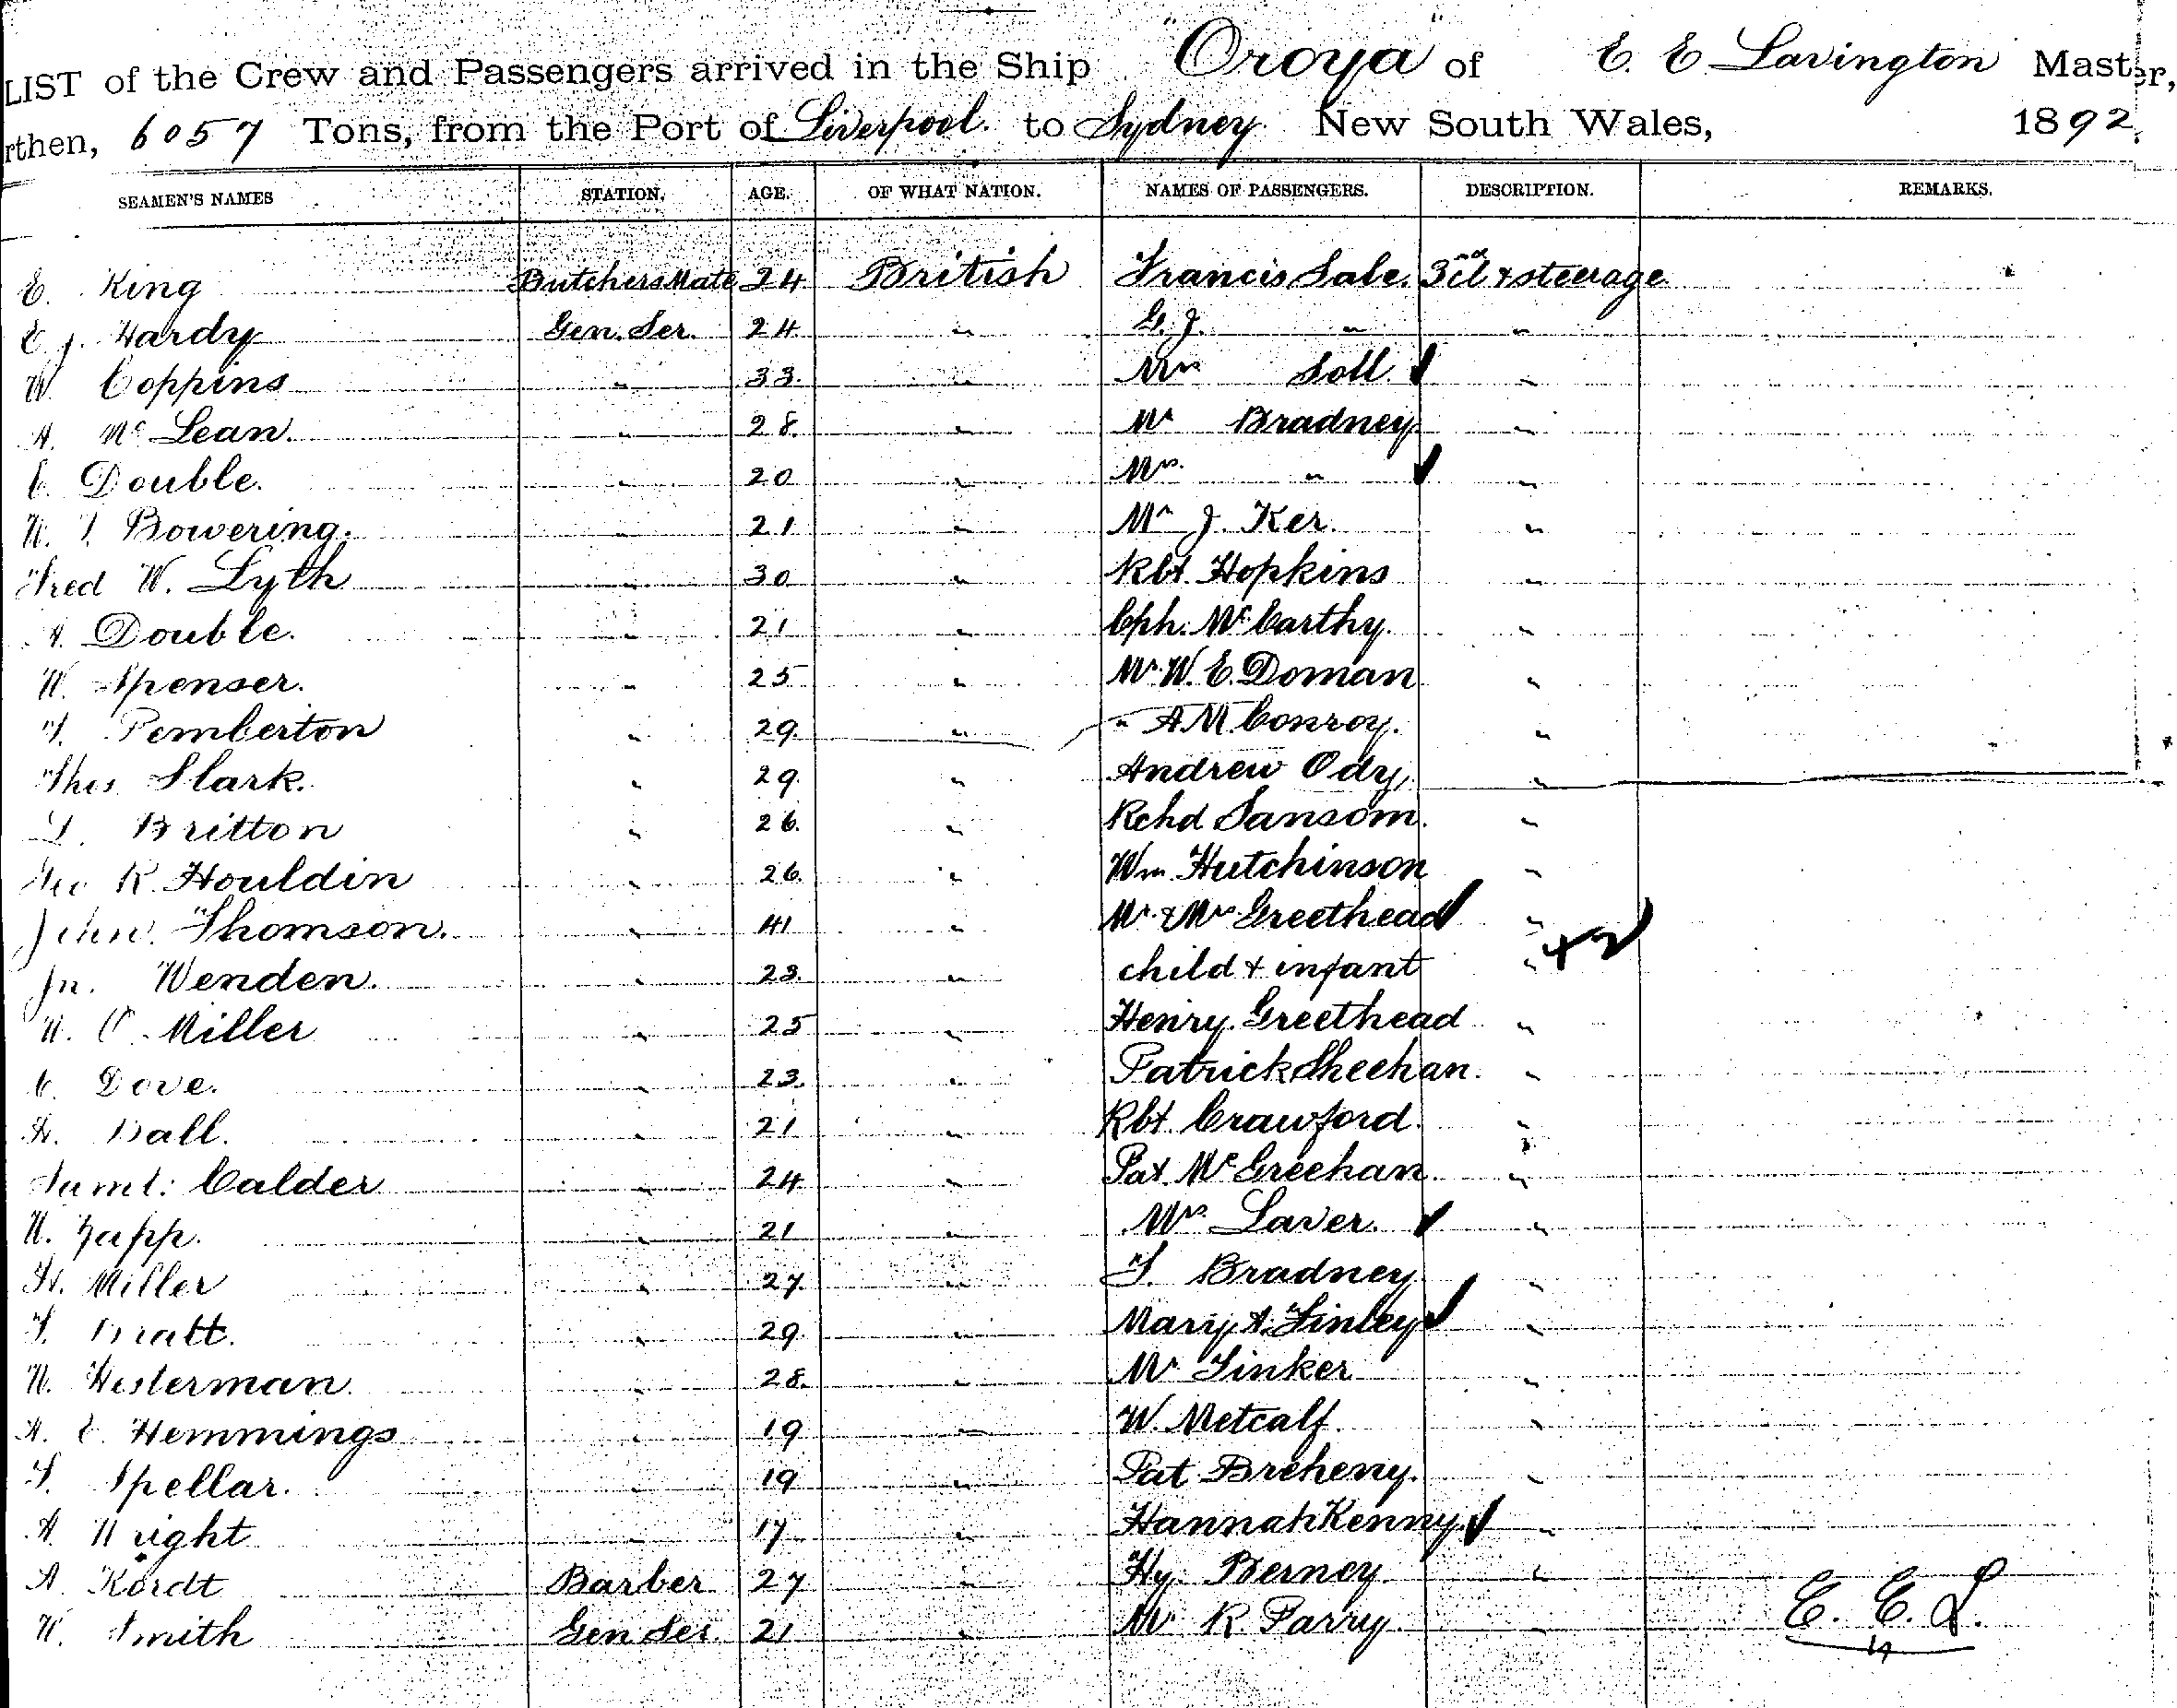 LIST of the Crew and Passengers arrived in the Ship "Oroya" of E. E. Lavington Master,
rthen, 6057 Tons, from the Port of Liverpool. to Sydney New South Wales, 1892.
SEAMEN'S NAMES STATION. AGE. OF WHAT NATION. NAMES OF PASSENGERS. DESCRIPTION. REMARKS.
E. King Butchers Mate 24 British Francis Sale. 3rd cl & steerage
E. J. Hardy Gen. Ser. 24 " G. J. " "
W. Coppins " 33. " Mrs Soll. "
A. Mc Lean. " 28. " Mr Bradney "
C. Double. " 20 " Mrs. " "
W. T. Bowering. " 21 " Mr J. Ker. "
Fred W. Lyth " 30 " Rbt. Hopkins "
A. Double. " 21 " Cph. McCarthy. "
W. Spenser. " 25 " Mr. W. E. Doman "
T. Pemberton " 29. " " A M Conroy. "
Thos. Slark. " 29. " Andrew Ody, "
L. Britton " 26. " Rchd Sansom. "
Geo R. Houldin " 26. " Wm. Hutchinson "
John. Thomson. " 41 " Mr. & Mrs Greethead "
Jn. Wenden. " 23. " child & infant " +2
W. C. Miller " 25 " Henry. Greethead "
C. Dove. " 23. " Patrick Sheehan. "
H. Ball. " 21 " Rbt. Crawford. "
Saml: Calder " 24 " Pat. McGreehan. "
W. Zapp. " 21 " Mrs. Laver. "
H. Miller " 27. " T. Bradney "
T. Bratt. " 29. " Mary A. Finley "
W. Westerman. " 28. " Mr. Tinker "
A. E. Hemmings " 19 " W. Metcalf. "
T. Spellar. " 19 " Pat Breheny. "
A. Wright " 17 " Hannah Kenny. "
A. Kordt Barber 27 " Hy. Berney. "
W. Smith Gen Ser. 21 " Mr. R. Parry. " E. E. L.